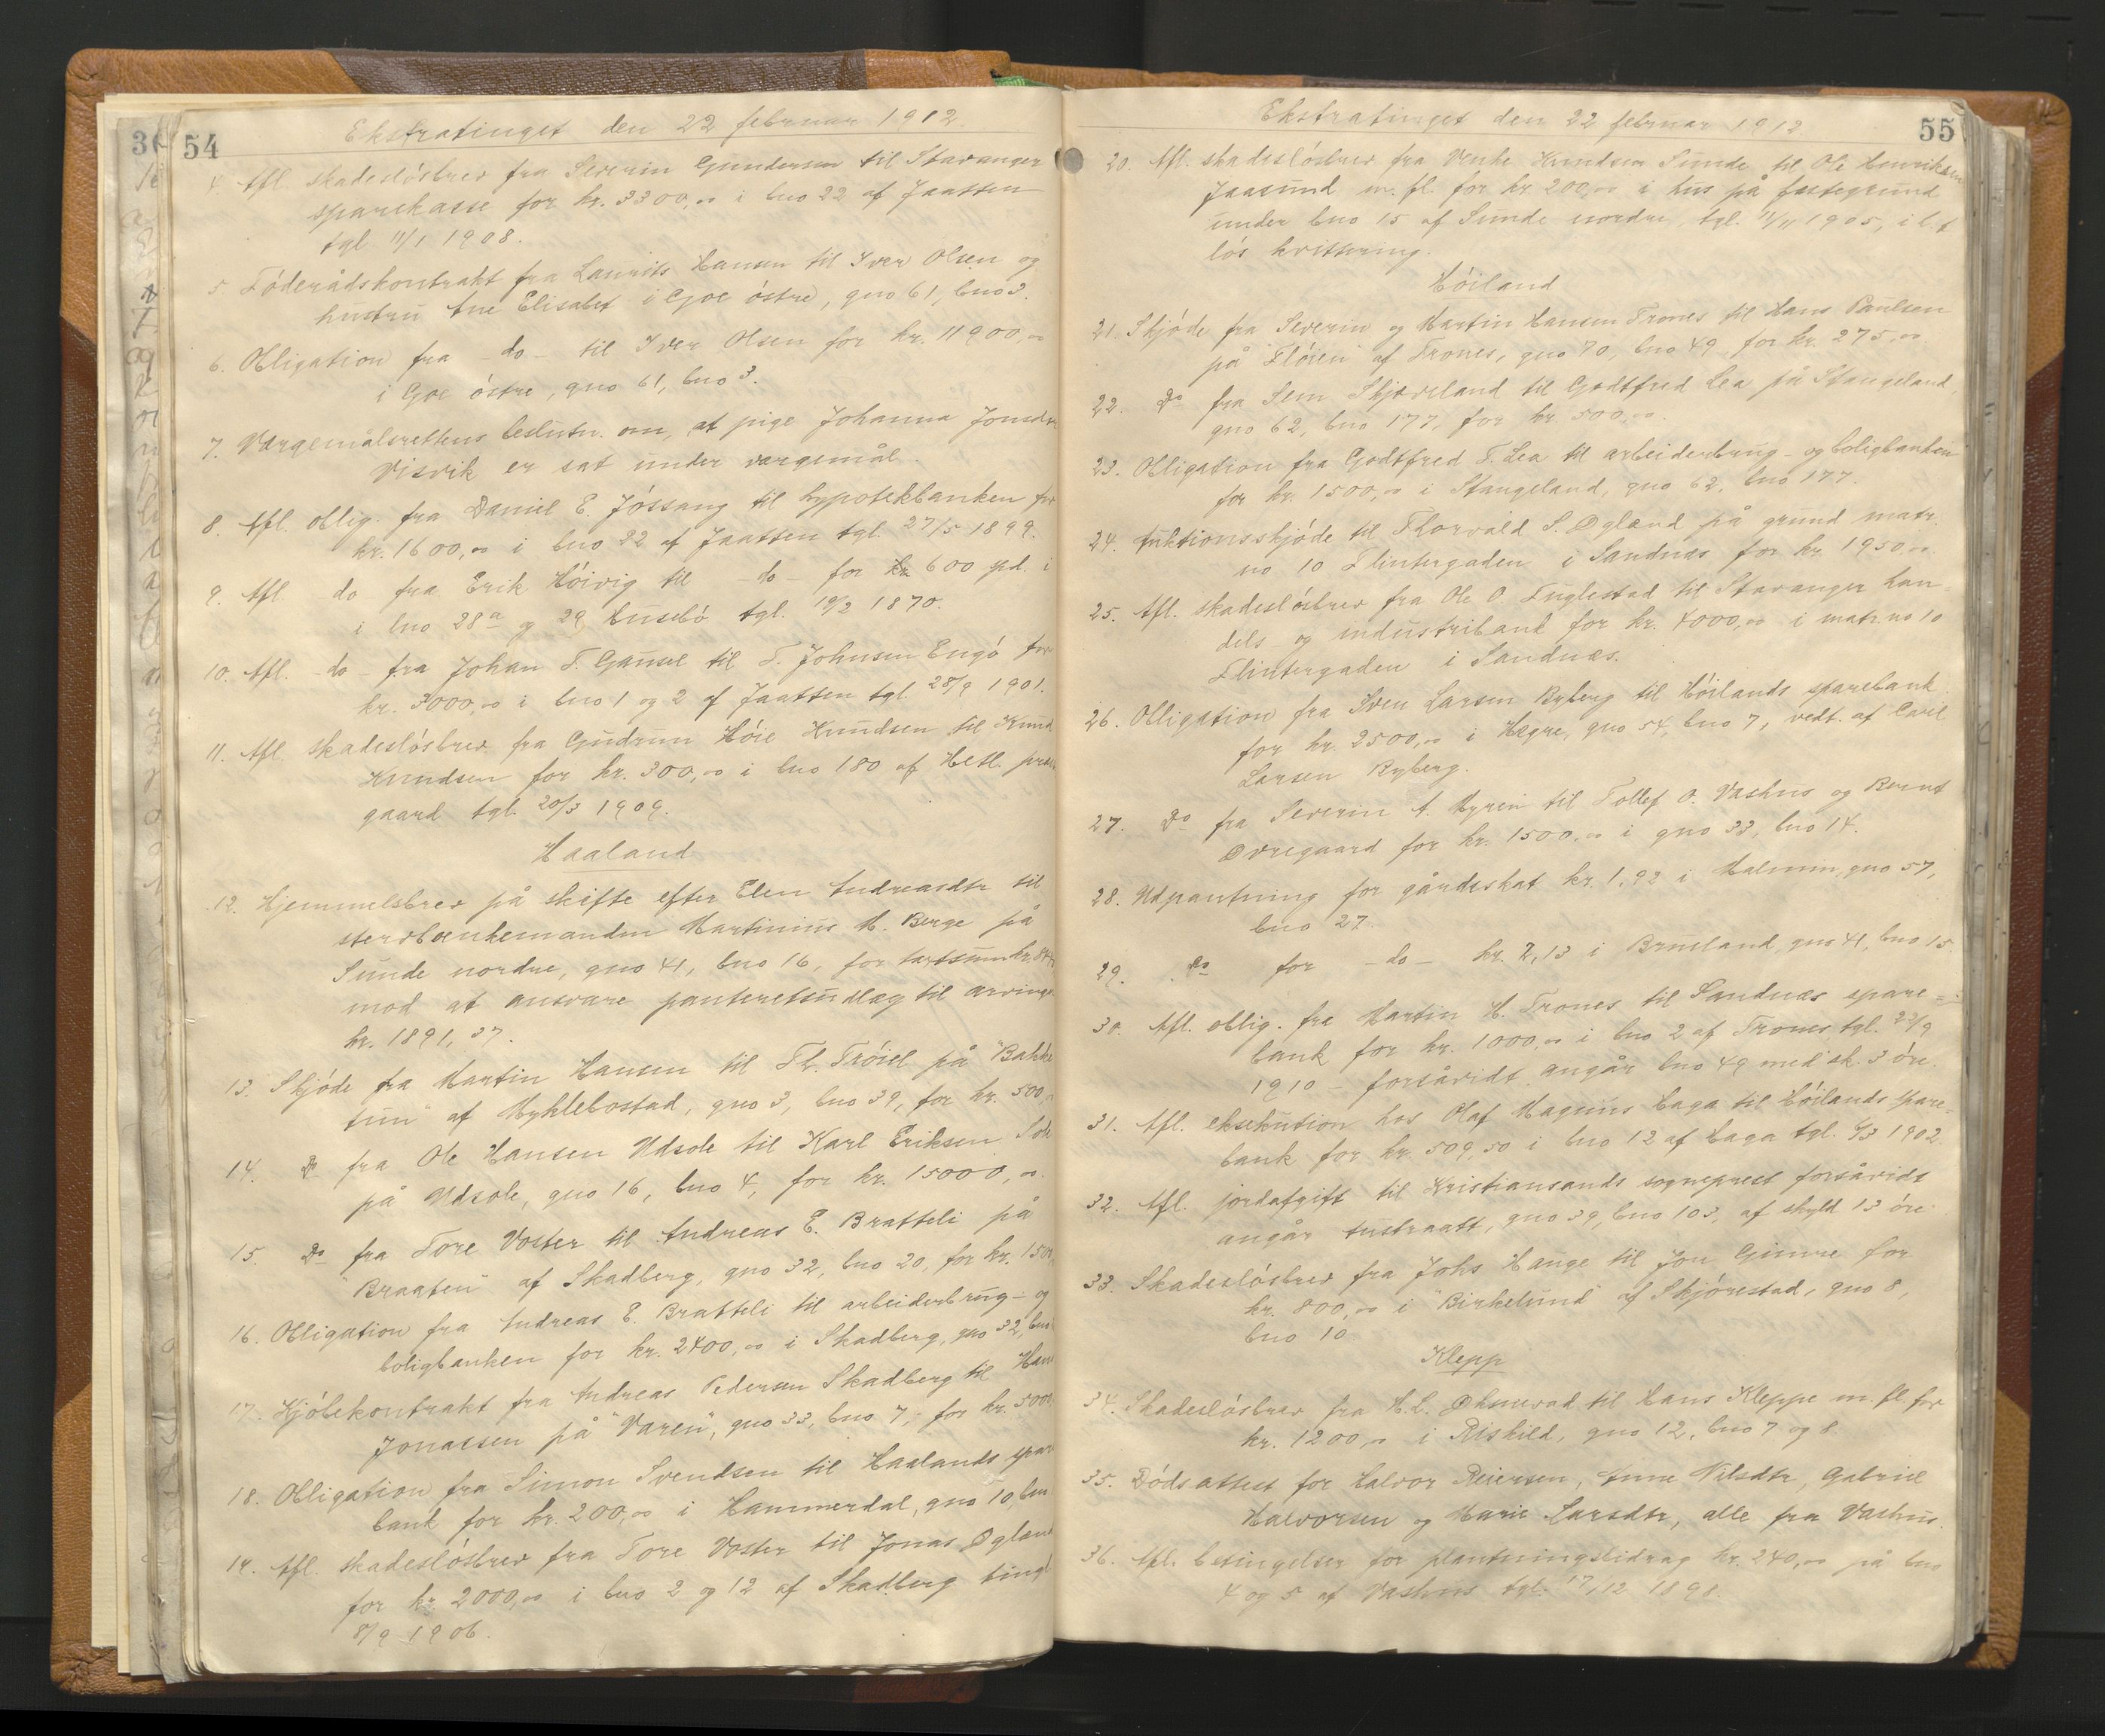 54
Ekstratinget den 22 februar 1912.
4. Afl. skadesløsbrev fra Severin Gundersen til Stavanger
sparekasse for kr. 3300,00 i bno 22 af Jaatten
tgl. 11/1 1908.
5. Føderådskontrakt fra Laurits Hansen til Iver Olsen og
hustru Ane Elisabet i Goe østre, gno 61, bno 3.
6. Obligation fra -do- til Iver Olsen for kr. 11900,00
i Goe østre, gno 61, bno 3.
7. Værgemålsrettens beslutn. om, at pige Johanna Jonsdtr
Visvik er sat under værgemål.
8. Afl. oblig. fra Daniel E. Jøssang til hypotekbanken for
kr. 1600,00 i bno 22 af Jaatten tgl. 27/5 1899.
9. Afl. do fra Erik Høivig til -do- for kr 600 spd. i
i bno 28a og 29 Husebø tgl. 19/2 1870.
10. Afl. -do- fra Johan T. Gausel til T. Johnsen Engø for
kr. 3000,00 i bno 1 og 2 af Jaatten tgl. 28/9 1901.
11. Afl. skadesløsbrev fra Gudrun Høie Knudsen til Knud
Knudsen for kr. 300,00 i bno 180 af Hetl. præste
gaard tgl. 20/3 1909.
Haaland
12. Hjemmelsbrev på skifte efter Elen Andreasdtr til
stervboenkemanden Martinius M. Berge på
Sunde nordre, gno 41, bno 16, for takstsum kr.
mod at ansvare panteretsudlæg til arvinge
kr. 1891,37.
13. Skjøde fra Martin Hansen til Th. Trøiel på "Bakke
tun" af Myklebostad, gno 3, bno 39, for kr. 500,00
14. Do fra Ole Hansen Udsole til Karl Eriksen Sole
på Udsole, gno 16, bno 4, for kr. 15000,00.
15. Do fra Tore Voster til Andreas E. Bratteli på
"Braaten" af Skadberg, gno 32, bno 20, for kr. 150
16. Obligation fra Andreas E. Bratteli til arbeiderbrug- og
boligbanken for kr. 2400,00 i Skadberg, gno 32, bno
17. Kjøbekontrakt fra Andreas Pedersen Skadberg til Hans
Jonassen på "Varen", gno 33, bno 7, for kr. 5000
18. Obligation fra Simon Svendsen til Haalands spare
bank for kr. 200,00 i Hammerdal, gno 10, bno
19. Afl. skadesløsbrev fra Tore Voster til Jonas Øgland
for kr. 2000,00 i bno 2 og 12 af Skadberg tingl
8/9 1906.
55
Ekstratinget den 22 februar 1912
20. Afl. skadesløsbrev fra Venke Knudsen Sunde til Ole Henriksen
Jaasund m. fl. for kr. 200,00 i hus på fæstegrund
under bno 15 af Sunde nordre tgl. 11/11 1905, i l. t
løs kvittering.
Høiland
21. Skjøde fra Severin og Martin Hansen Trones til Hans Paulsen
på "Fløien" af Trones, gno 70, bno 49 for kr. 275,00
22. Do fra Sem Skjæveland til Godtfred Lea på Stangeland,
gno 62, bno 177, for kr. 500,00.
23. Obligation fra Godtfred T. Lea til arbeiderbrug- og boligbanken
for kr. 1500,00 i Stangeland, gno 62, bno 177.
24. Auktionsskjøde til Thorvald S. Øgland på grund matr.
no 10 Flintergaden i Sandnæs for kr. 1950,00.
25. Afl. skadesløsbrev fra Ole O. Fuglestad til Stavanger han-
dels og industribank for kr. 4000,00 i matr. no 10
Flintergaden i Sandnæs.
26. Obligation fra Sven Larsen Ryberg til Høilands sparebank
for kr. 2500,00 i Hægre, gno 54, bno 7, vedt. af Carl
Larsen Ryberg.
27. Do fra Severin A. Myren til Tollef O. Vashus og Bernt
Øvregaard for kr. 1500,00 i gno 33, bno 14.
28. Udpantning for gårdsskat kr. 1,92 i Malmin, gno 57,
bno 27.
29. Do for -do- kr. 2,13 i Brusland, gno 41, bno 15
30. Afl. oblig. fra Martin H. Trones til Sandnæs spare=
bank for kr. 1000,00 i bno 2 af Trones tgl. 22/9
1910 - forsåvidt angår bno 49 med sk. 3 øre.
31. Afl. eksekution hos Olaf Magnus Haga til Høilands spare=
bank for kr. 509,50 i bno 12 af Haga tgl. 6/3 1902.
32. Afl. jordafgift til Kristiansands sogneprest forsåvidt
angår Austraatt, gno 39, bno 103, af skyld 13 øre.
33. Skadesløsbrev fra Johs Hauge til Jon Gimre for
kr. 800,00 i "Birkelund" af Skjørestad, gno 8,
bno 10
Klepp
34. Skadesløsbrev fra H. L. Øksnevad til Hans Kleppe m. fl. for
kr. 1200,00 i Riskild, gno 12, bno 7 og 8.
35. Dødsattest for Halvor Reiersen, Anne Nilsdtr, Gabriel
Halvorsen og Marie Larsdtr, alle fra Vashus.
36. Afl. betingelser for plantningsbidrag kr. 240,00 på bno
4 og 5 af Vashus tgl. 17/12 1898.